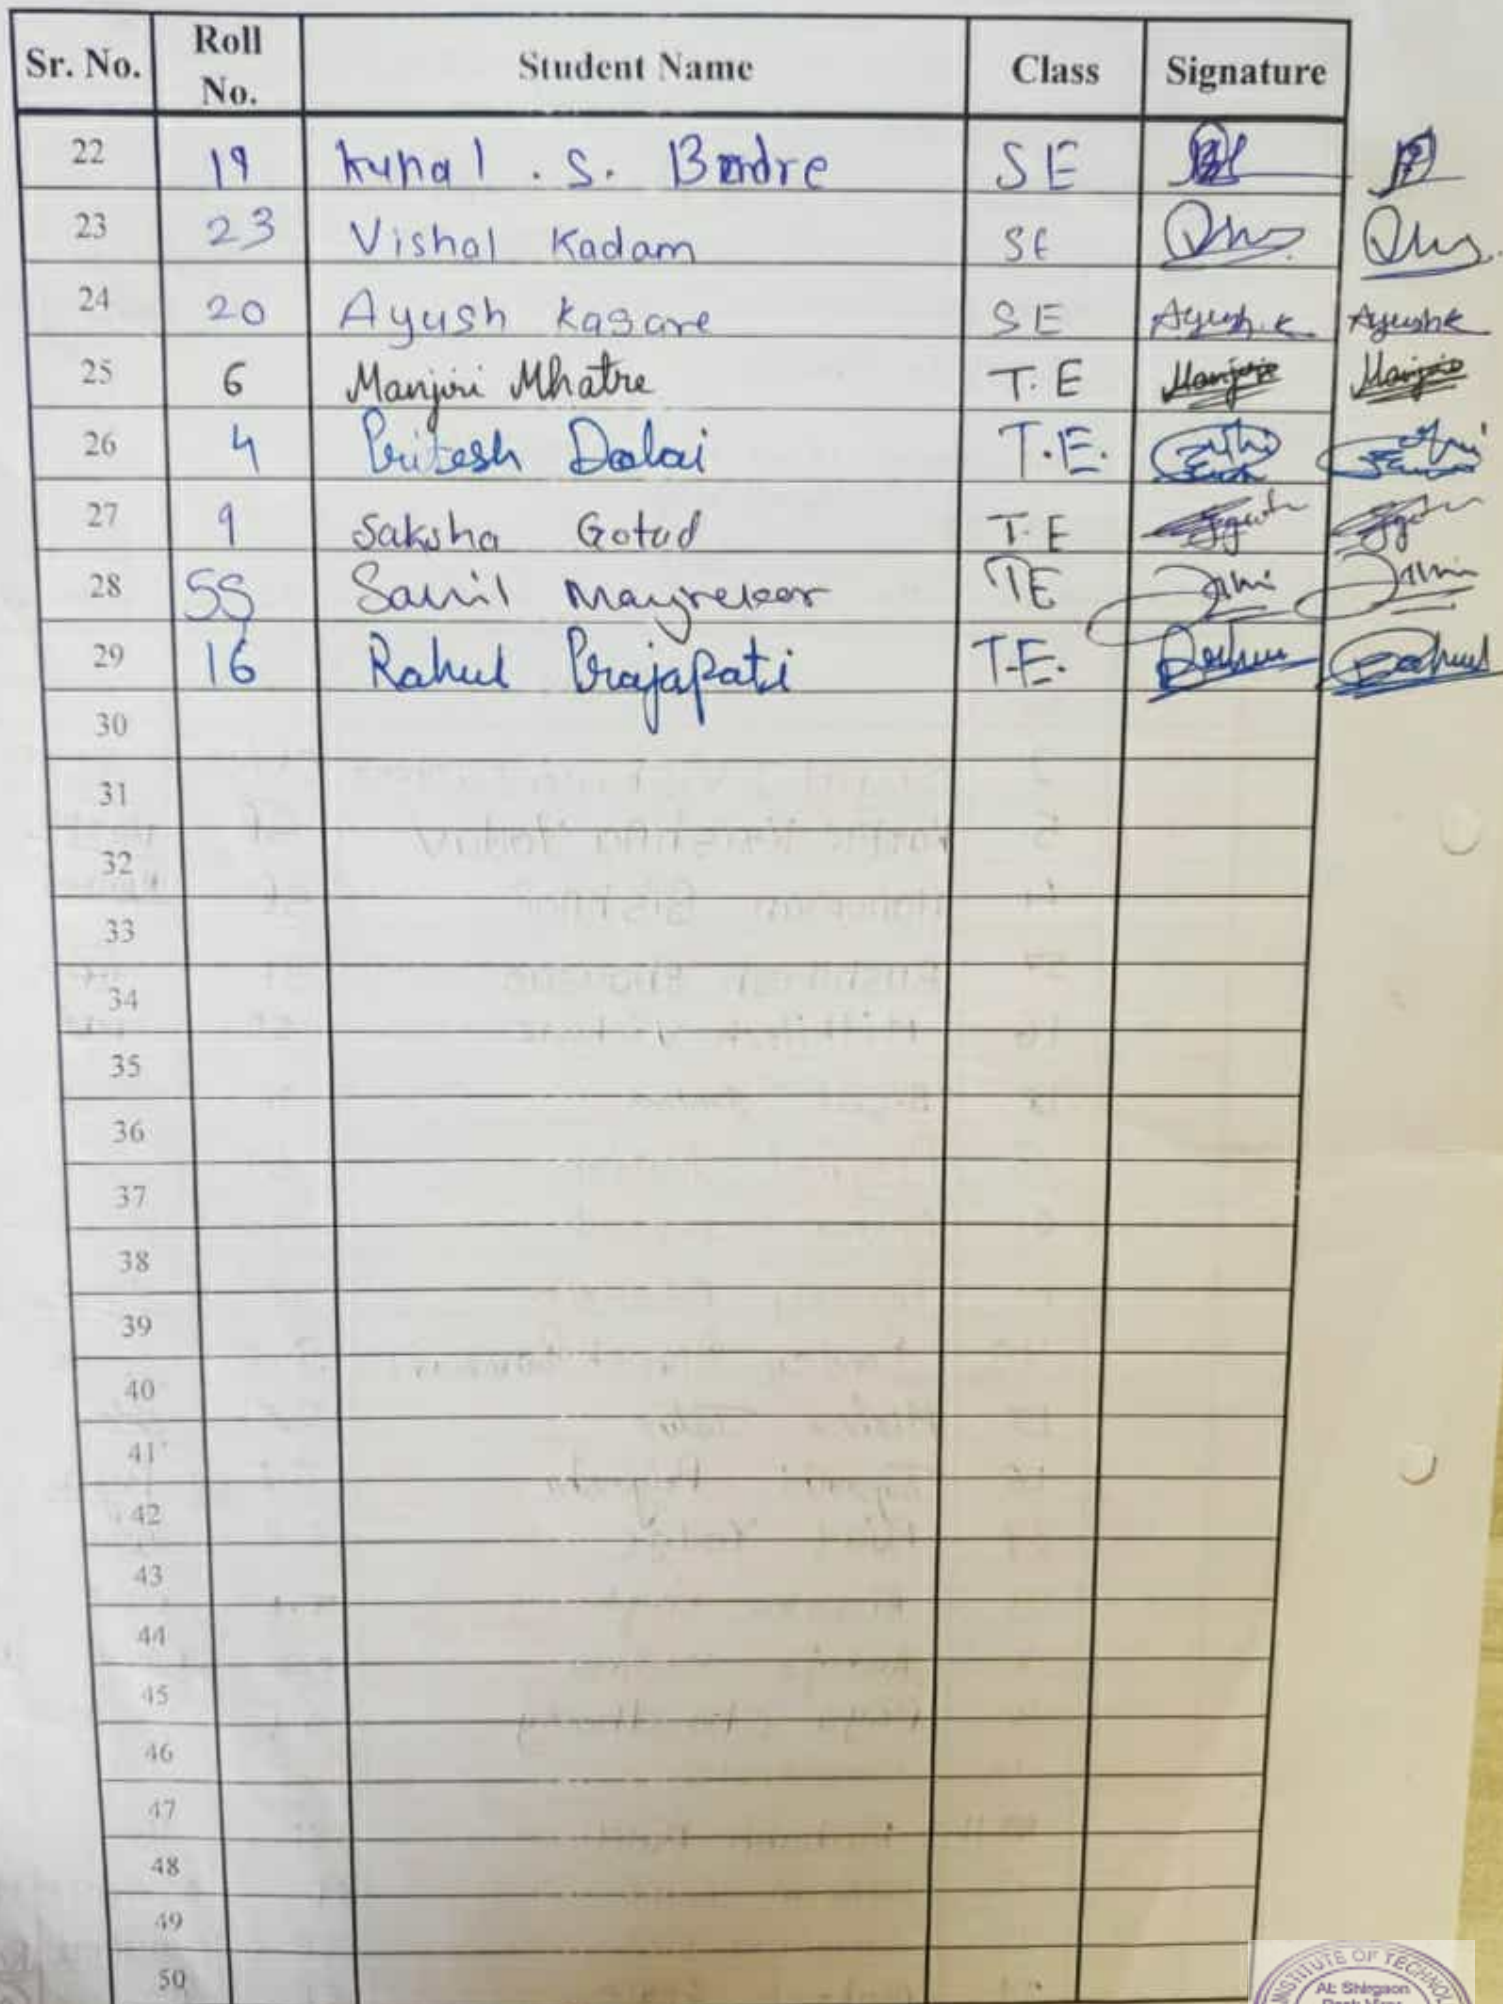 Sr. No. Roll No. Student Name Class Signature
22 19 Kunal . S. Bendre SE
23 23 Vishal Kadam SE
24 20 Ayush Kasare SE Ayush.K Ayush K
25 6 Manjiri Mhatre T.E Manjiri Manjiri
26 4 Pritesh Dalai T.E.
27 9 Saksha Gotad T.E
28 55 Sahil Mayrekar TE
29 16 Rahul Prajapati T.E. Rahul
30
31
32
33
34
35
36
37
38
39
40
41
42
43
44
45
46
47
48
49
50
INSTITUTE OF TECHNOLO
At: Shirgaon